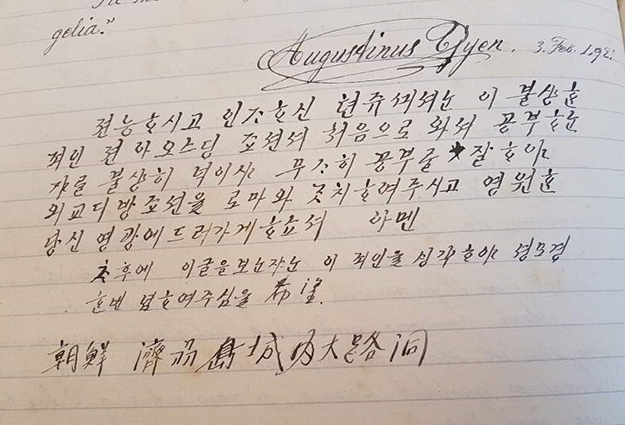 gelia."
Augustinus Tyen. 3. Feb. 192
전능ᄒᆞ시고 인ᄌᆞᄒᆞ신 텬쥬셰셔ᄂᆞᆫ 이 불상ᄒᆞᆫ
죄인 전아오스딩 조선셔 처음으로 와셔 공부ᄒᆞᄂᆞᆫ
자를 불상히 녁이샤 무ᄉᆞ히 공부를 잘ᄒᆞ야
외교디방조선을 로마와 ᄀᆞᆺ치ᄒᆞ여주시고 영원ᄒᆞᆫ
당신 영광에드러가게ᄒᆞ쇼셔 아멘
후에 이글을보ᄂᆞᆫ자ᄂᆞᆫ 이 죄인을 ᄉᆡᆼ각ᄒᆞ야 셩모경
ᄒᆞᆫ번 념ᄒᆞ여주심을 希望.
朝鮮 濟州島城內大路洞